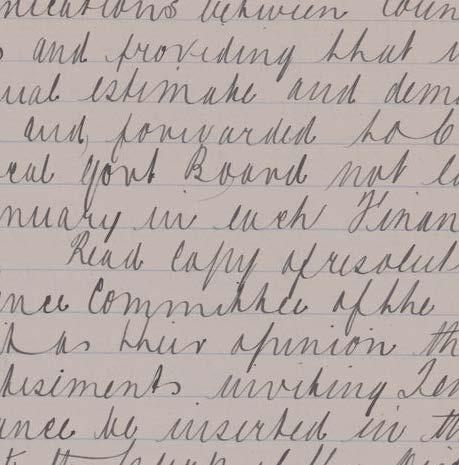 nications between Coun
s and providing that
ual estimate and dem
and, forwarded to C
cal Govt Board not la
nuary in each Finan
Read Copy of resolut
ance Committee of the
d as their opinion th
tisements inviting Ten
ance be inserted in th